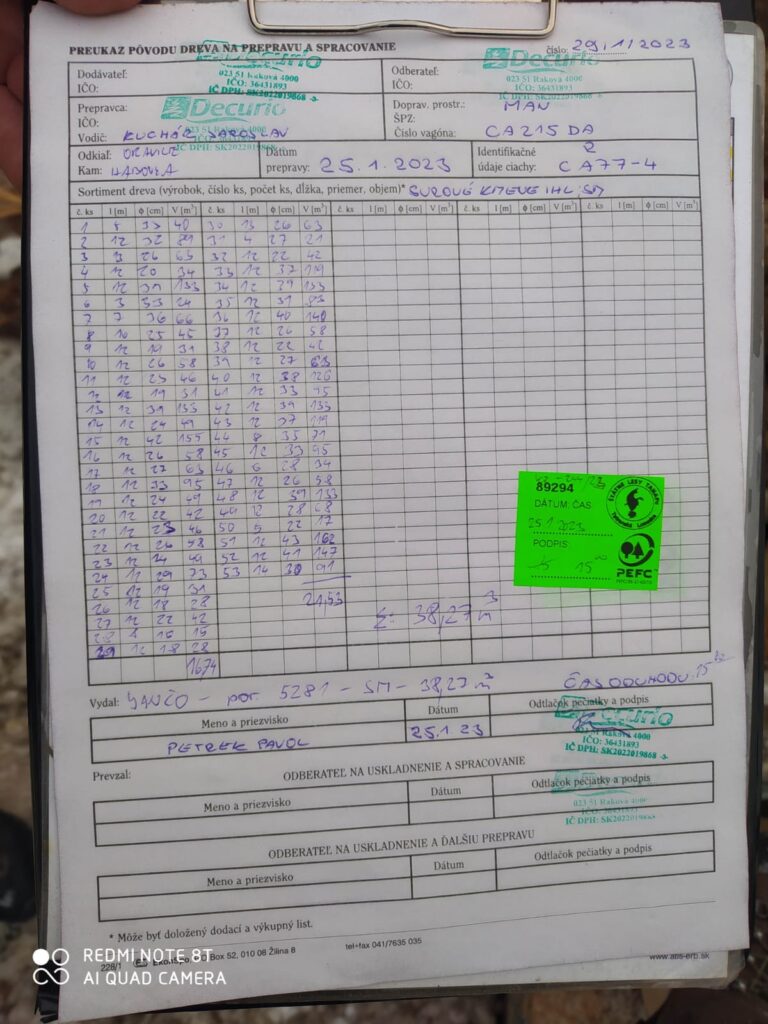 PREUKAZ PÔVODU DREVA NA PREPRAVU A SPRACOVANIE
číslo: 29/1/2023
Dodávateľ:
IČO:
Decurio
023 51 Raková 4000
IČO: 36431893
IČ DPH: SK2022019868 -3-
Odberateľ:
IČO:
Decurio
023 51 Raková 4000
IČO: 36431893
IČ DPH: SK2022019868
Prepravca:
IČO:
Vodič: KUCHÁR JAROSLAV
Decurio
023 51 Raková 4000
IČ DPH: SK2022019868
Doprav. prostr.: MAN
ŠPZ:
Číslo vagóna: CA215DA
Odkiaľ: ORAVICE
Kam:
Dátum
prepravy: 25.1.2023
Identifikačné
údaje ciachy: CA77-4
Sortiment dreva (výrobok, číslo ks, počet ks, dĺžka, priemer, objem)* SUROVÉ KMENE IHL. SM
č. ks l [m] ϕ [cm] V [m³] č. ks l [m] ϕ [cm] V [m³] č. ks l [m] ϕ [cm] V [m³] č. ks l [m] ϕ [cm] V [m³] č. ks l [m] ϕ [cm] V [m³]
30 13 26 63
2 12 32 89 31 4 27 21
32 12 22 42
4 12 20 34 33 12 37 119
5 12 39 133 34 12 39 133
35 12 31 83
7 7 36 66 36 12 40 140
8 10 25 45 37 12 26 58
9 12 19 31 38 12 22 42
10 12 26 58 39 12 27 63
11 12 23 46 40 12 38 126
12 12 19 31 41 12 33 95
13 12 39 133 42 12 39 133
14 12 24 49 43 12 37 119
15 12 42 155 44 8 35 71
16 12 26 58 45 12 33 95
17 12 27 63 46 6 28 34
18 12 33 95 47 12 26 58
19 12 24 49 48 12 39 133
20 12 22 42 49 12 28 68
21 12 23 46 50 5 22 17
22 12 26 58 51 12 43 162
23 12 24 49 52 12 41 147
24 12 29 73 53 14 30 91
25 12 19 31
26 12 18 28 21,53
27 12 22 42 Σ: 38,27 m³
28 8 16 15
29 12 18 28
1674
89294
DÁTUM, ČAS:
25 1 2023
PODPIS:
ŠTÁTNE LESY TANAPU
Tatranská Lomnica
PEFC
Vydal: JANČO - por. 5281 - SM - 38,27 m³
ČAS ODCHODU
Meno a priezvisko
Dátum
Odtlačok pečiatky a podpis
PETREK PAVOL
25.1.23
Decurio
023 51 Raková 4000
IČO: 36431893
IČ DPH: SK2022019868 -3-
Prevzal:
ODBERATEĽ NA USKLADNENIE A SPRACOVANIE
Meno a priezvisko
Dátum
Odtlačok pečiatky a podpis
023 51 Raková 4000
IČO: 36431893
IČ DPH: SK2022019868
ODBERATEĽ NA USKLADNENIE A ĎALŠIU PREPRAVU
Meno a priezvisko
Dátum
Odtlačok pečiatky a podpis
* Môže byť doložený dodací a výkupný list.
228/1
Box 52, 010 08 Žilina 8
tel+fax 041/7635 035
www.abs-erb.sk
REDMI NOTE 8T
AI QUAD CAMERA